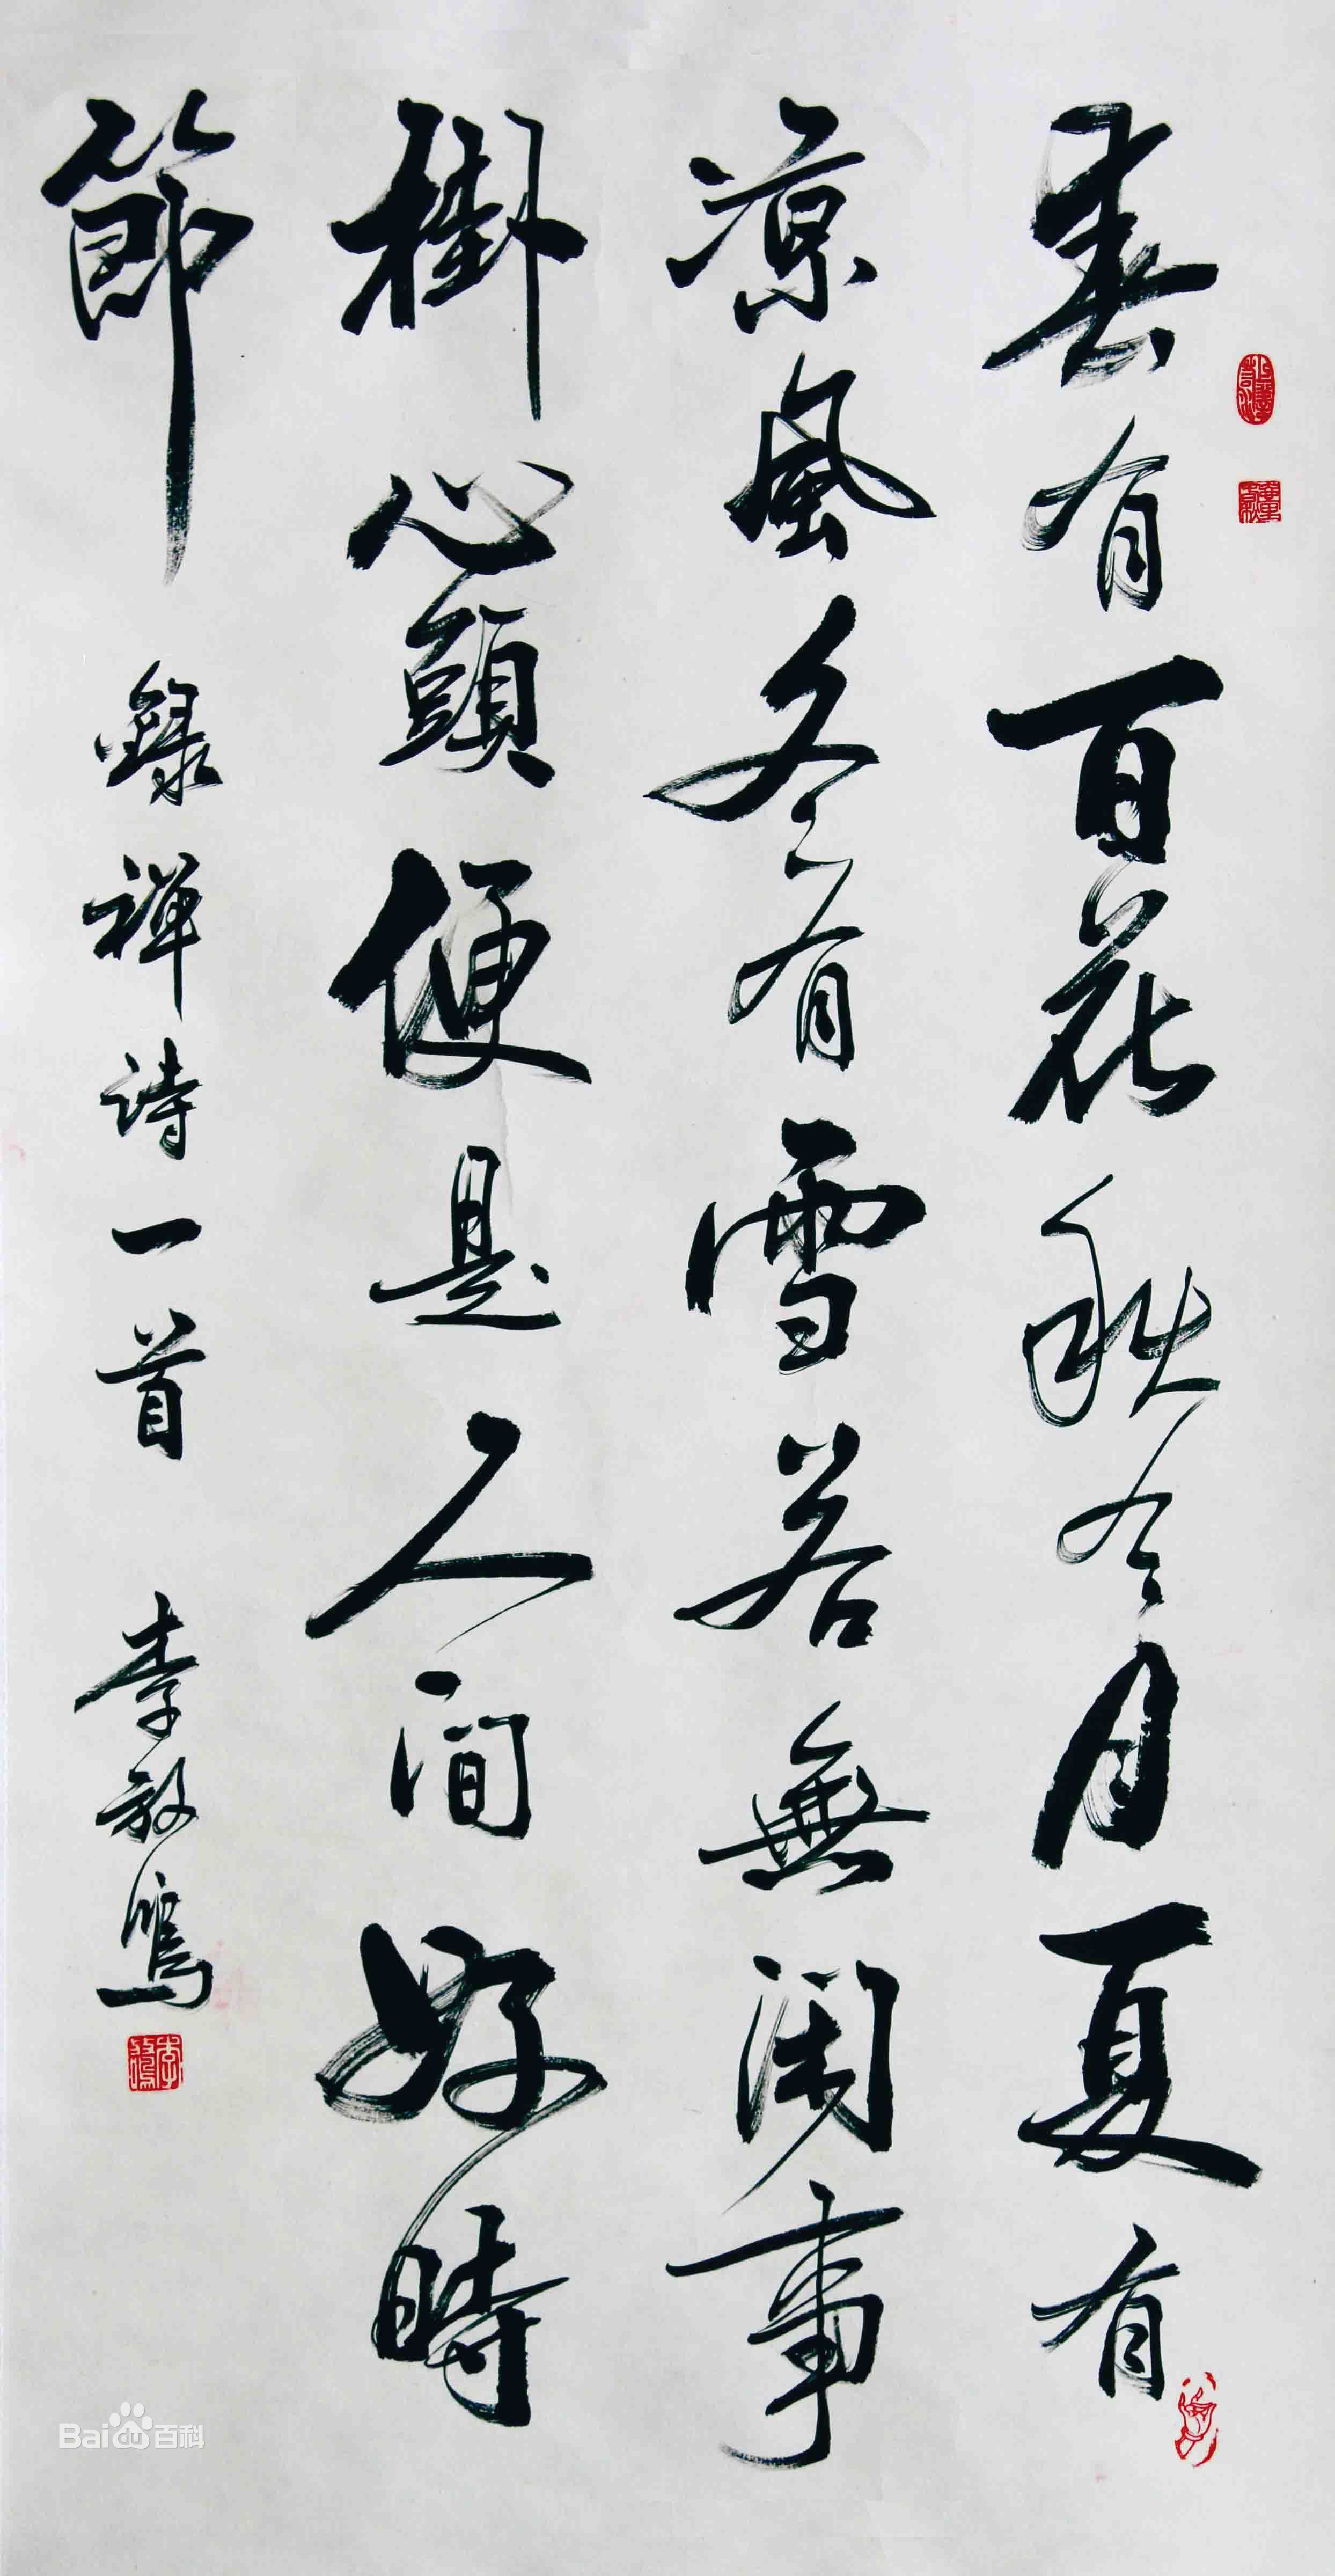 春有百花秋有月夏有
凉風冬有雪若無閑事
掛心頭便是人間好時
節 錄禪詩一首 李放鳴
Bai du 百科